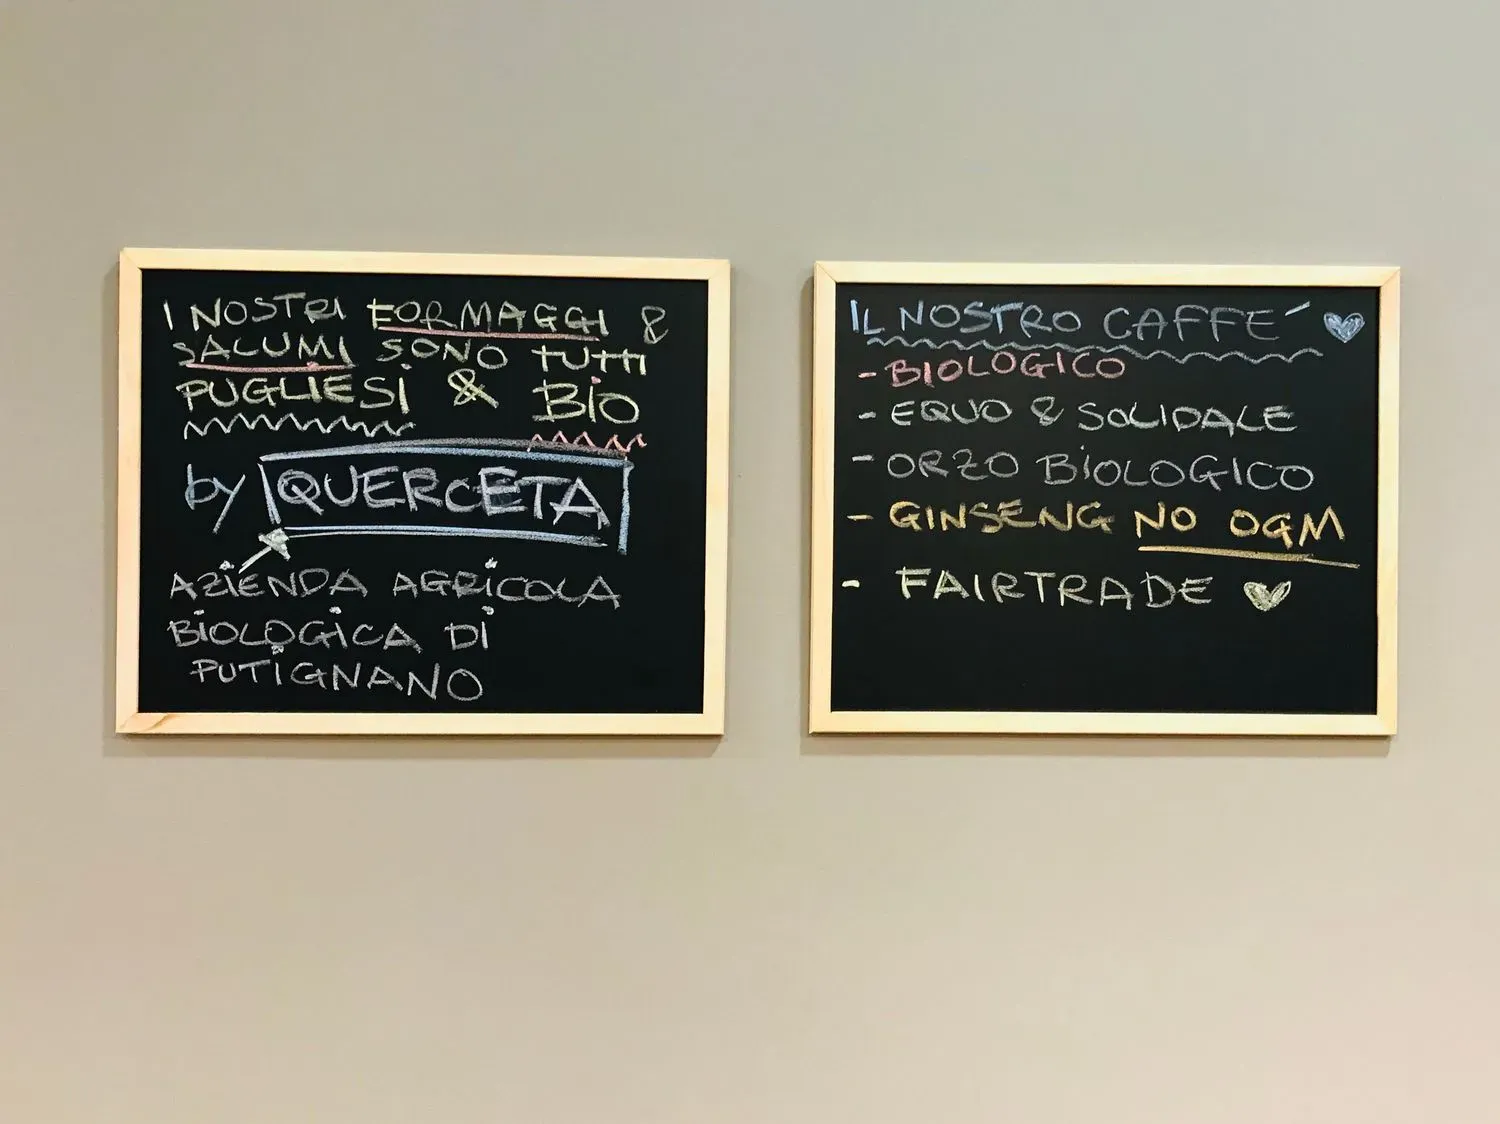 I NOSTRI FORMAGGI &
SALUMI SONO TUTTI
PUGLIESI & BIO
by QUERCETA
AZIENDA AGRICOLA
BIOLOGICA DI
PUTIGNANO
IL NOSTRO CAFFE'
- BIOLOGICO
- EQUO & SOLIDALE
- ORZO BIOLOGICO
- GINSENG NO OGM
- FAIRTRADE